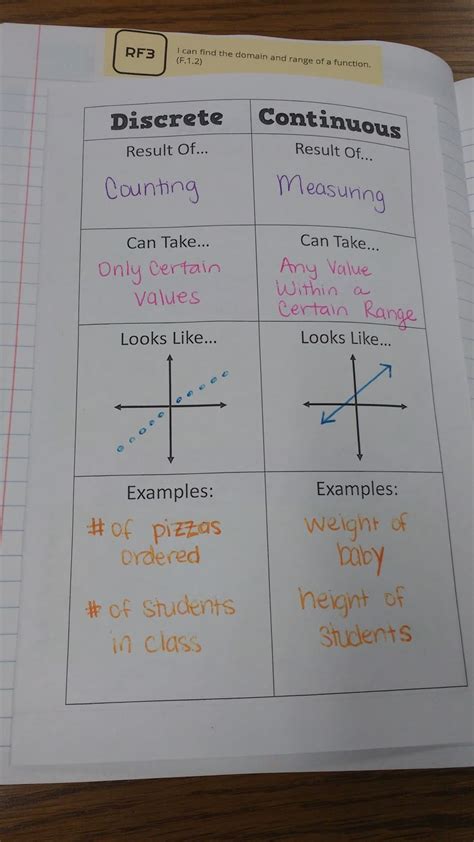 RF3
I can find the domain and range of a function.
(F.1.2)
Discrete
Continuous
Result Of...
Counting
Result Of...
Measuring
Can Take...
Only Certain
Values
Can Take...
Any Value
Within a
Certain Range
Looks Like...
Looks Like...
Examples:
# of pizzas
ordered
# of Students
in class
Examples:
Weight of
baby
height of
Students